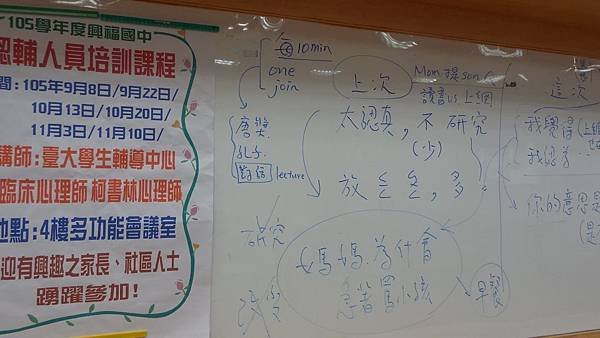 105學年度興福國中
認輔人員培訓課程
間:105年9月8日/9月22日/
10月13日/10月20日/
11月3日/11月10日/
講師:臺大學生輔導中心
臨床心理師 柯書林心理師
地點:4樓多功能會議室
迎有興趣之家長、社區人士
踴躍參加!
每10min
one
join
唐獎
孔子
對話 lecture
研究
上次
Mom 揍 son
讀書 vs 上網
太認真,不研究
(少)
放
多
媽媽為什會
急著罵小孩
早餐
這次
我覺得(上網
我認為
你的意思是
(是